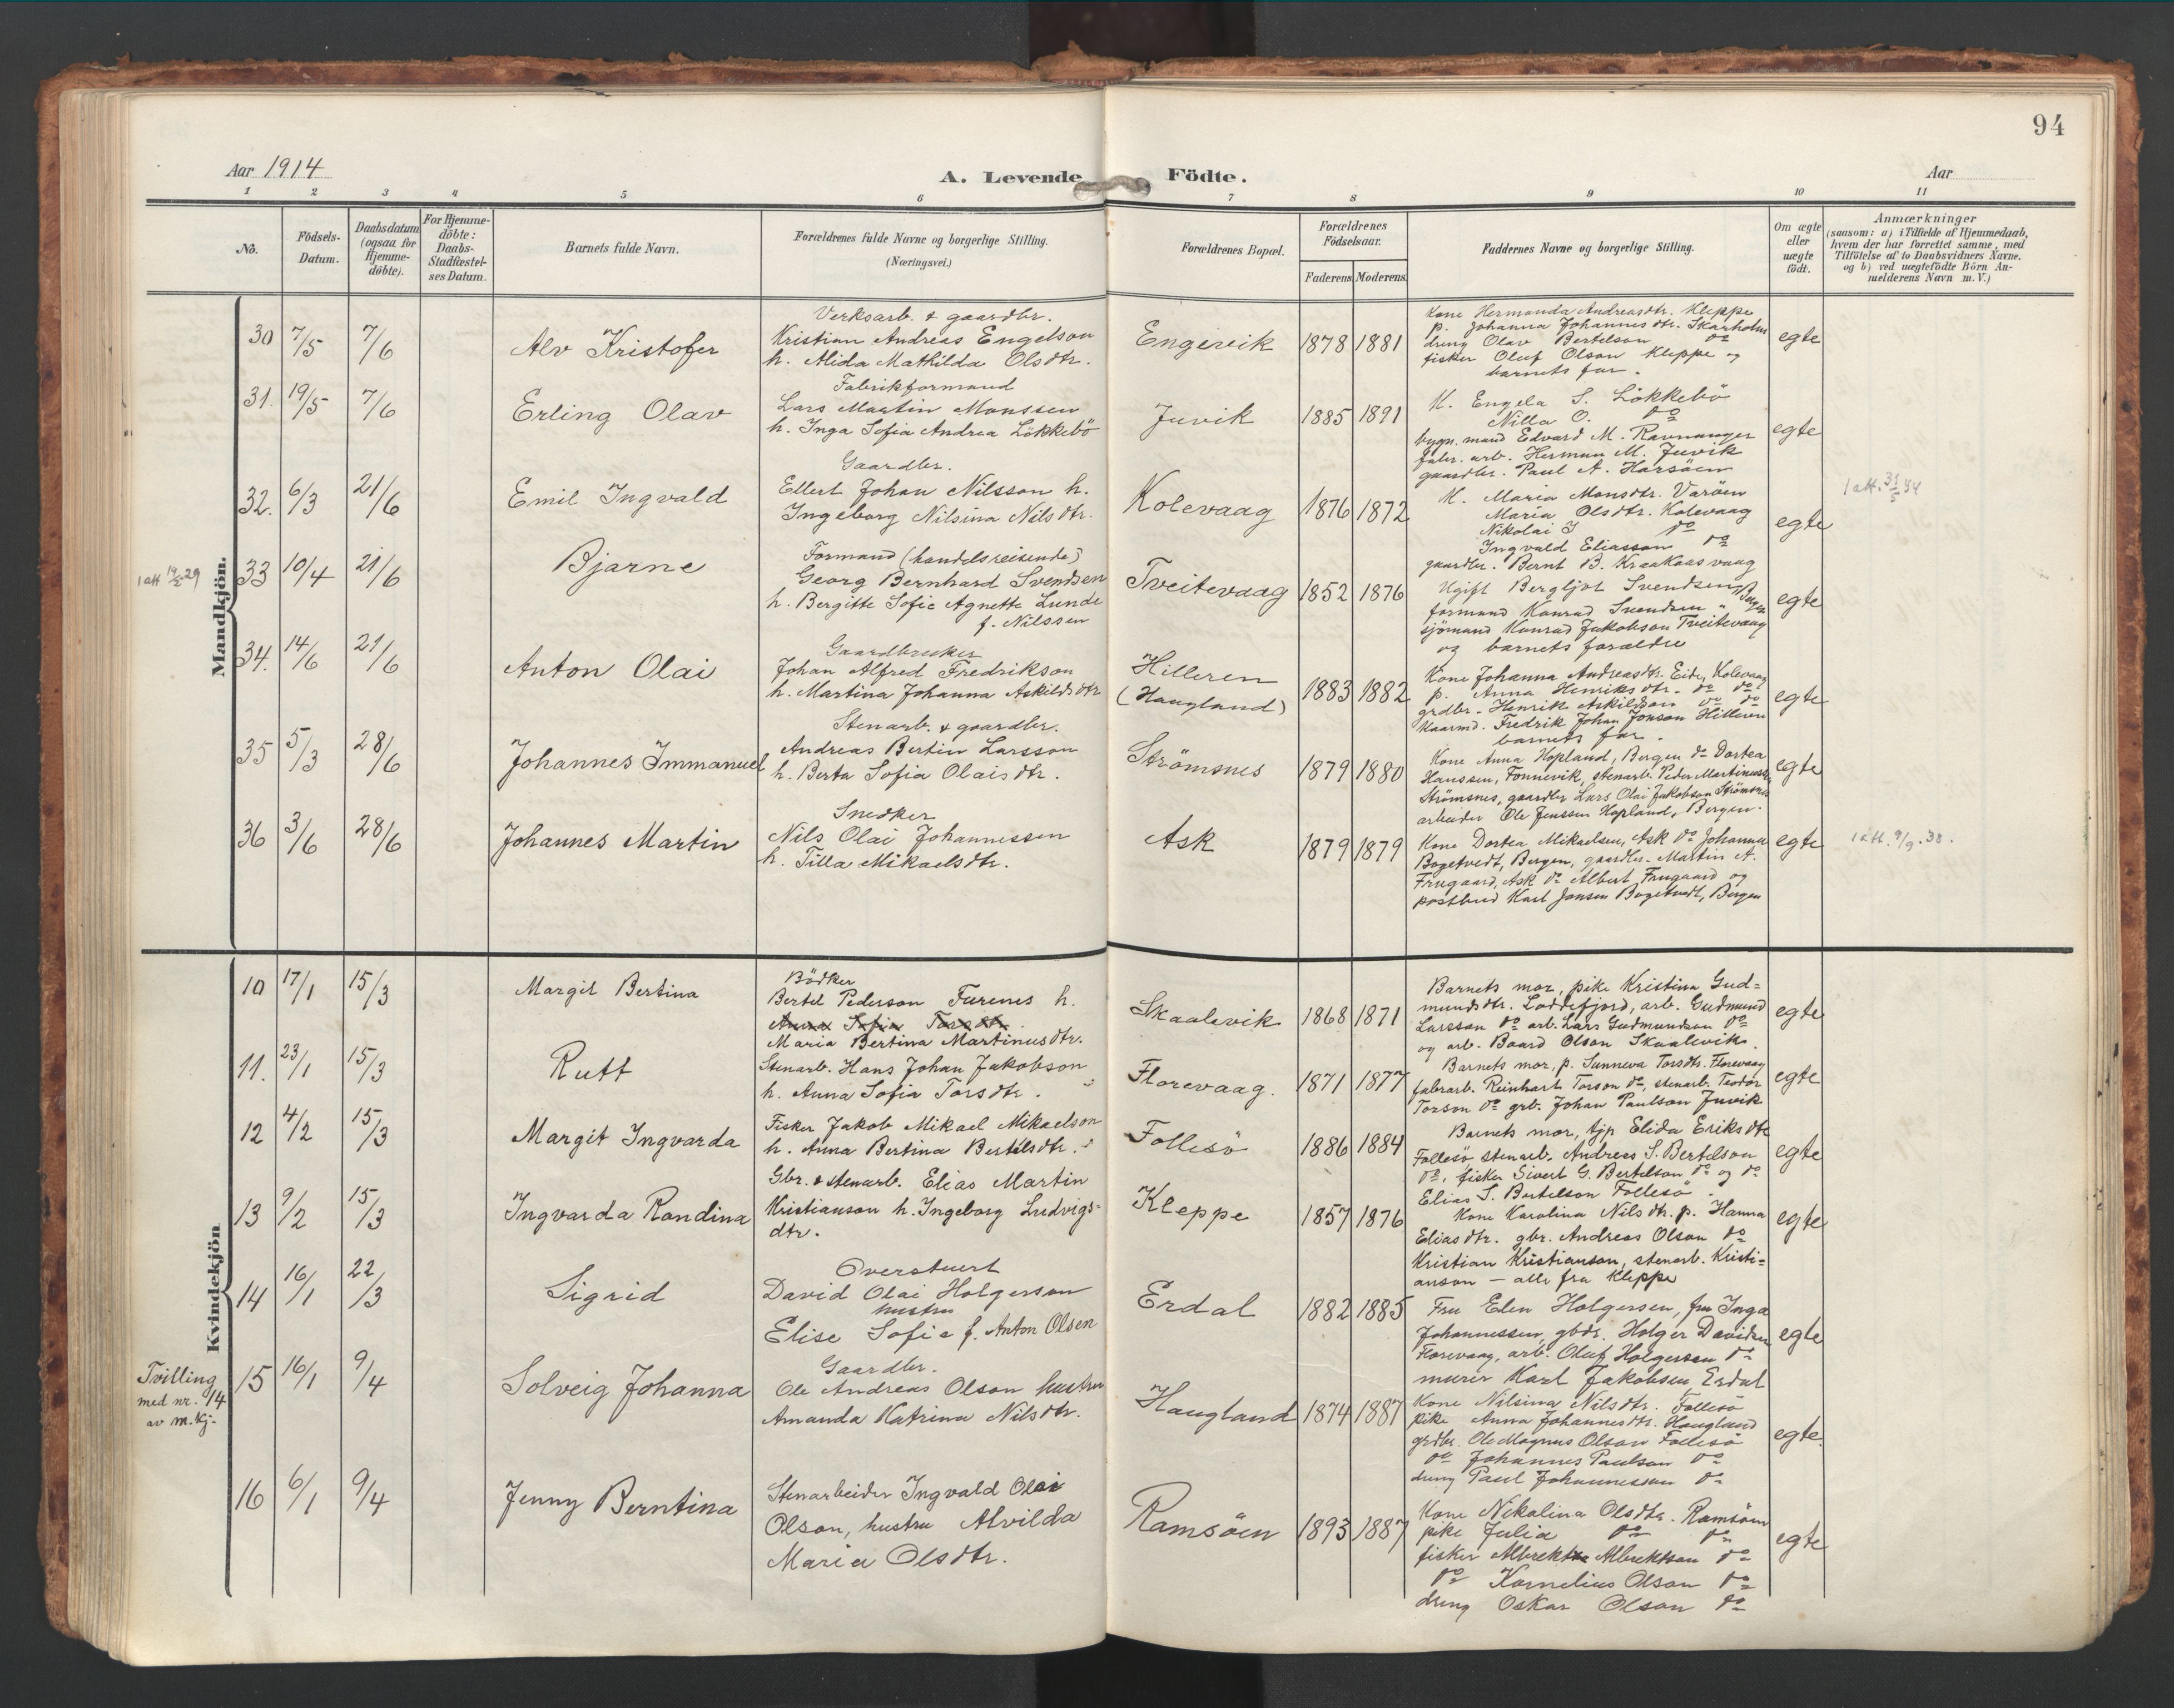 94
Aar 1914
A. Levende
Födte.
Aar
1 2 3 4 5 6 7 8 9 10 11
No.
Födsels-
Datum.
Daabsdatum
(ogsaa for
Hjemme-
döbte).
For Hjemme-
döbte:
Daabs-
Stadfæstel-
ses Datum.
Barnets fulde Navn.
Forældrenes fulde Navne og borgerlige Stilling.
(Næringsvei.)
Forældrenes Bopæl.
Forældrenes
Födselsaar.
Faderens Moderens
Faddernes Navne og borgerlige Stilling.
Om ægte
eller
uægte
födt.
Anmærkninger
(saasom: a) i Tilfælde af Hjemmedaab,
hvem der har forrettet samme, med
Tilföielse af to Daabsvidners Navne.
og b) ved uægtefödte Börn An-
melderens Navn m. V.)
Mandkjön.
30 7/5 7/6
Alv Kristofer
Verksarb. & gaardbr.
Kristian Andreas Engelson
h. Alida Mathilda Olsdtr.
Engevik
1878 1881
Kone Hermanda Andreasdtr. Kleppe
p. Johanna Johannesdtr. Skarholm
dreng Olav Bertelson do
fisker Oluf Olson Kleppe og
barnets far.
egte
31. 19/5 7/6
Erling Olav
Fabrikformand
Lars Martin Monssen
h. Inga Sofia Andrea Lökkebö
Juvik
1885 1891
K. Engela S. Lökkebö
Nilla O. do
bygn. mand Edvard M. Ravnanger
fabr. arb. Herman M. Juvik
gaardbr. Paul A. Harsöen
egte
32. 6/3 21/6
Emil Ingvald
Gaardbr.
Ellert Johan Nilsson h.
Ingeborg Nilsina Nilsdtr.
Kolevaag
1876 1872
K. Maria Monsdtr. Varöen
Maria Olsdtr. Kolevaag
Nikolai I do
Ingvald Eliasson do
gaardbr. Bernt B. Kraakaasvaag
egte
1 att. 31/5 44
1 att 19/2 29
33 10/4 21/6
Bjarne
Formand (handelsreisende)
Georg Bernhard Svendsen
h. Bergitte Sofie Agnette Lunde
f. Nilssen
Tveitevaag
1852 1876
Ugift Bergljot Svendsen, Bergen
formand Konrad Svendsen "
sjömand Konrad Jakobson Tveitevaag
og barnets foraeldre
egte
34. 14/6 21/6
Anton Olai
Gaardbruker
Johan Alfred Fredrikson
h. Martina Johanna Askildsdtr
Hilleren
(Haugland)
1883 1882
Kone Johanna Andreasdtr. Eide, Kolevaag
p. Anna Henriksdtr. do do
grdbr. Henrik Askildson do do
Kaarmd. Fredrik Johan Jonson Hilleren
barnets far.
egte
35 5/3 28/6
Johannes Immanuel
Stenarb. & gaardbr.
Andreas Bertin Larsson
h. Berta Sofia Olaisdtr.
Strömsnes
1879 1880
Kone Anna Hopland, Bergen do Dortea
Hanssen, Fonnevik, stenarb. Peder Martinussen
Strömsnes, gaardbr Lars Olai Jakobson Strömsnes
arbeider Ole Jenssen Hopland, Bergen.
egte
36 3/6 28/6
Johannes Martin
Snedker
Nils Olai Johannessen
h. Tilla Mikaelsdtr.
Ask
1879 1879
Kone Dortea Mikaelsen, Ask do Johanna
Bogetvedt, Bergen, gaardbr. Martin A.
Frugaard, Ask do Albert Frugaard og
postbud Karl Jonsen Bogetvedt, Bergen
egte
1 att. 9/9. 38.
Kvindekjön
10 17/1 15/3
Margit Bertina
Bödker
Bertel Pederson Furenes h.
Anna Sofia Torsdtr.
Maria Bertina Martinusdtr.
Skaalevik
1868 1871
Barnets mor, pike Kristina Gud=
mundsdtr. Loddefjord, arb. Gudmund
Larsson do arb. Lars Gudmundson do
og arb. Baard Olson Skaalevik.
egte
11. 23/1 15/3
Rutt
Stenarb. Hans Johan Jakobson
h. Anna Sofia Torsdtr.
Florevaag.
1871 1877
Barnets mor, p. Sunneva Torsdtr. Florevaag
fabrarb. Reinhart Torson do, stenarb. Teodor
Torson do grb. Johan Paulson Juvik
egte
12 4/2 15/3
Margit Ingvarda
Fisker Jakob Mikael Mikaelson
h. Anna Bertina Bertelsdtr.
Follesö
1886 1884
Barnets mor, tjp Elida Eriksdtr
Follesö stenarb. Andreas S. Bertelson
do, fisker Sivert G. Bertelson do og do
Elias S. Bertelson Follesö.
egte
13 9/2 15/3
Ingvarda Randina
Gbr. & stenarb. Elias Martin
Kristianson h. Ingeborg Ludvigs=
dtr.
Kleppe
1857 1876
Kone Karolina Nilsdtr. p. Hanna
Eliasdtr. gbr. Andreas Olson do
Kristian Kristianson, stenarb. Kristi=
anson — alle fra Kleppe
egte
14 16/1 22/3
Sigrid
Overstuert
David Olai Holgerson
hustru
Elise Sofie f. Anton Olsen
Erdal
1882 1885
Fru Elen Holgersen, fru Inga
Johannessen, gbdr. Holger Davidsen
Florevaag, arb. Oluf Holgersen do
murer Karl Jakobsen, Erdal
egte
Tvilling
med nr. 14
av m.kj.
15 16/1 9/4
Solveig Johanna
Gaardbr.
Ole Andreas Olson hustru
Amanda Katrina Nilsdtr.
Haugland
1874 1887
Kone Nilsina Nilsdtr. Follesö
Pike Anna Johannesdtr. Haugland
grdbr. Ole Magnus Olson Follesö
do Johannes Paulson do
dreng Paul Johannessen do
egte.
16 6/1 9/4
Jenny Berntina
Stenarbeider Ingvald Olai
Olson, hustru Alvilda
Maria Olsdtr.
Ramsöen
1893 1887
Kone Nikolina Olsdtr. Ramsöen
pike Julia do do
fisker Albrekt Albrektson do
do Kornelius Olson do
dreng Oskar Olson do
egte